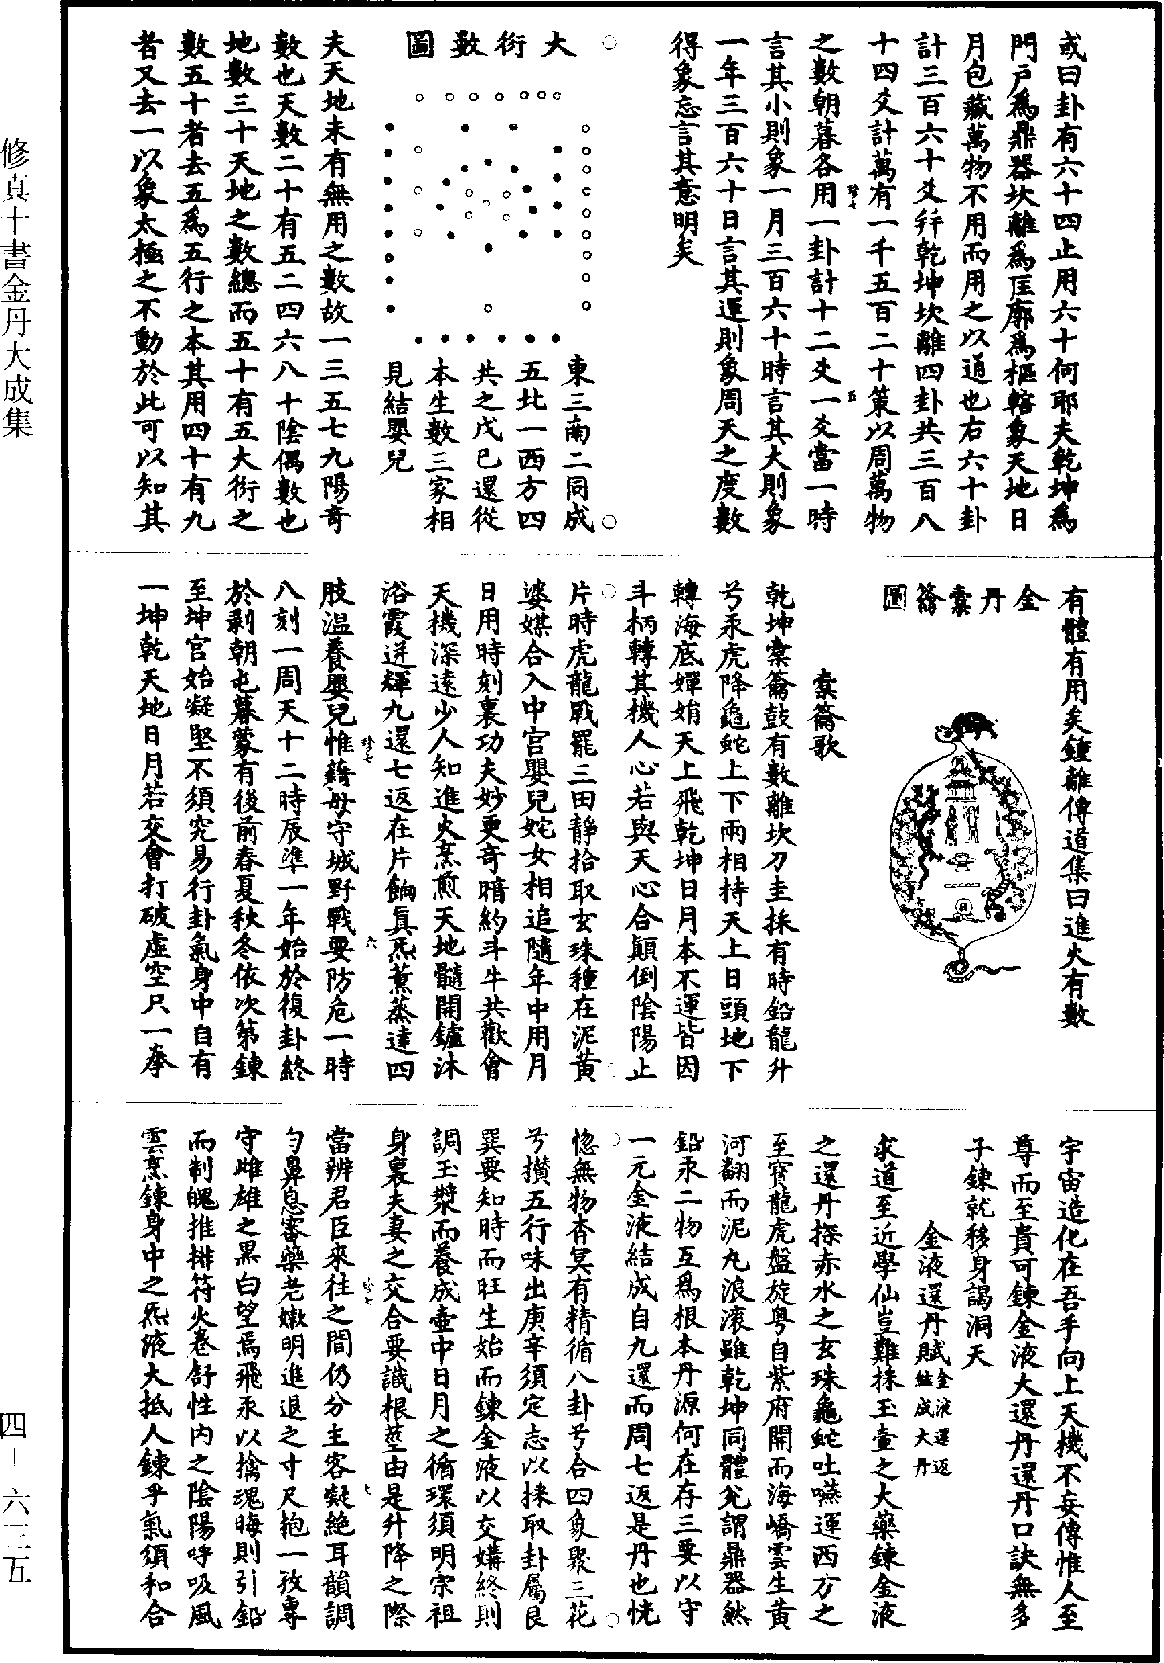 或曰卦有六十四止用六十何耶夫乾坤爲
門戶爲鼎器坎離爲匡廓爲樞轄象天地日
月包藏萬物不用而用之以通也右六十卦
計三百六十爻幷乾坤坎離四卦共三百八
十四爻計萬有一千五百二十策以周萬物
之數朝暮各用一卦計十二爻一爻當一時
言其小則象一月三百六十時言其大則象
一年三百六十日言其運則象周天之度數
得象忘言其意明矣
大衍數圖
東三南二同成
五北一西方四
共之戊己還從
本生數三家相
見結嬰兒
夫天地未有無用之數故一三五七九陽奇
數也天數二十有五二四六八十陰偶數也
地數三十天地之數總而五十有五大衍之
數五十者去五爲五行之本其用四十有九
者又去一以象太極之不動於此可以知其
有體有用矣鍾離傳道集曰進火有數
金丹橐籥圖
橐籥歌
乾坤橐籥鼓有數離坎刀圭採有時鉛龍升
兮汞虎降龜蛇上下兩相持天上日頭地下
轉海底嬋娟天上飛乾坤日月本不運皆因
斗柄轉其機人心若與天心合顚倒陰陽止
片時虎龍戰罷三田靜拾取玄珠種在泥黃
婆媒合入中宮嬰兒姹女相追隨年中用月
日用時刻裏功夫妙更奇暗約斗牛共歡會
天機深遠少人知進火烹煎天地髓開鑪沐
浴霞迸輝九還七返在片餉眞炁薰蒸達四
肢溫養嬰兒惟藉母守城野戰要防危一時
八刻一周天十二時辰準一年始於復卦終
於剝朝屯暮蒙有後前春夏秋冬依次第鍊
至坤宮始凝堅不須究易行卦氣身中自有
一坤乾天地日月若交會打破虛空只一拳
宇宙造化在吾手向上天機不妄傳惟人至
尊而至貴可鍊金液大還丹還丹口訣無多
子鍊就移身謁洞天
金液還丹賦金液還返結成大丹
求道至近學仙豈難採玉壺之大藥鍊金液
之還丹探赤水之玄珠龜蛇吐嚥運西方之
至寶龍虎盤旋粤自紫府開而海嶠雲生黃
河翻而泥丸浪滾雖乾坤同體兊謂鼎器然
鉛汞二物互爲根本丹源何在存三要以守
一元金液結成自九還而周七返是丹也恍
惚無物杳冥有精循八卦兮合四象聚三花
兮攢五行味出庚辛須定志以採取卦屬艮
巽要知時而旺生始而鍊金液以交媾終則
調玉漿而養成壺中日月之循環須明宗祖
身裏夫妻之交合要識根莖由是升降之際
當辨君臣來往之間仍分主客凝絶耳韻調
勻鼻息審藥老嫩明進退之寸尺抱一孜專
守雌雄之黑白望焉飛汞以擒魂晦則引鉛
而制魄推排符火卷舒性內之陰陽呼吸風
雲烹鍊身中之炁液大抵人鍊乎氣須和合
修真十書金丹大成集
四—六二五